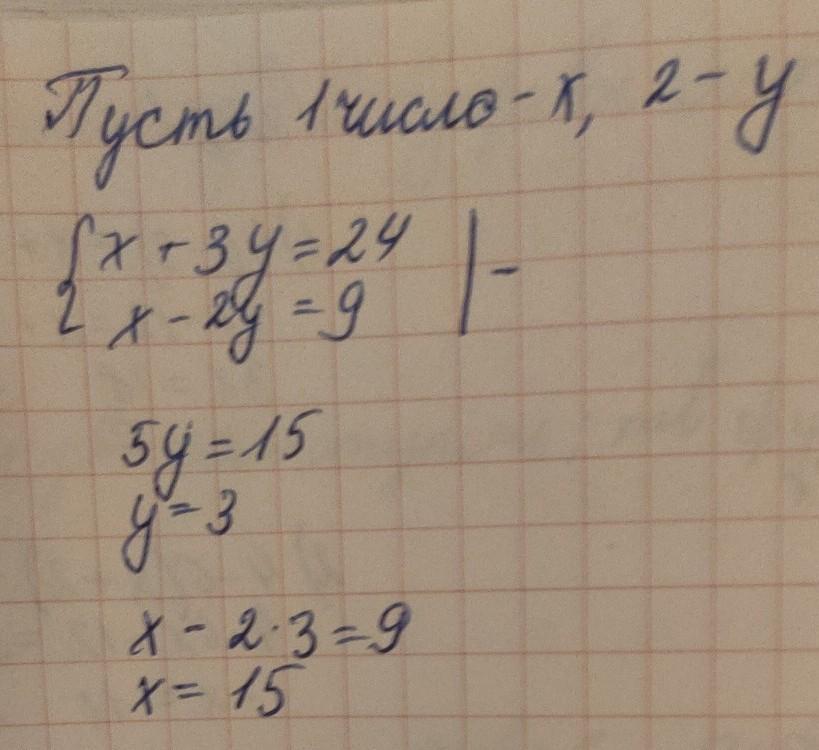 Пусть 1 число - x, 2 - y
{ x + 3y = 24 | -
x - 2y = 9
5y = 15
y = 3
x - 2·3 = 9
x = 15